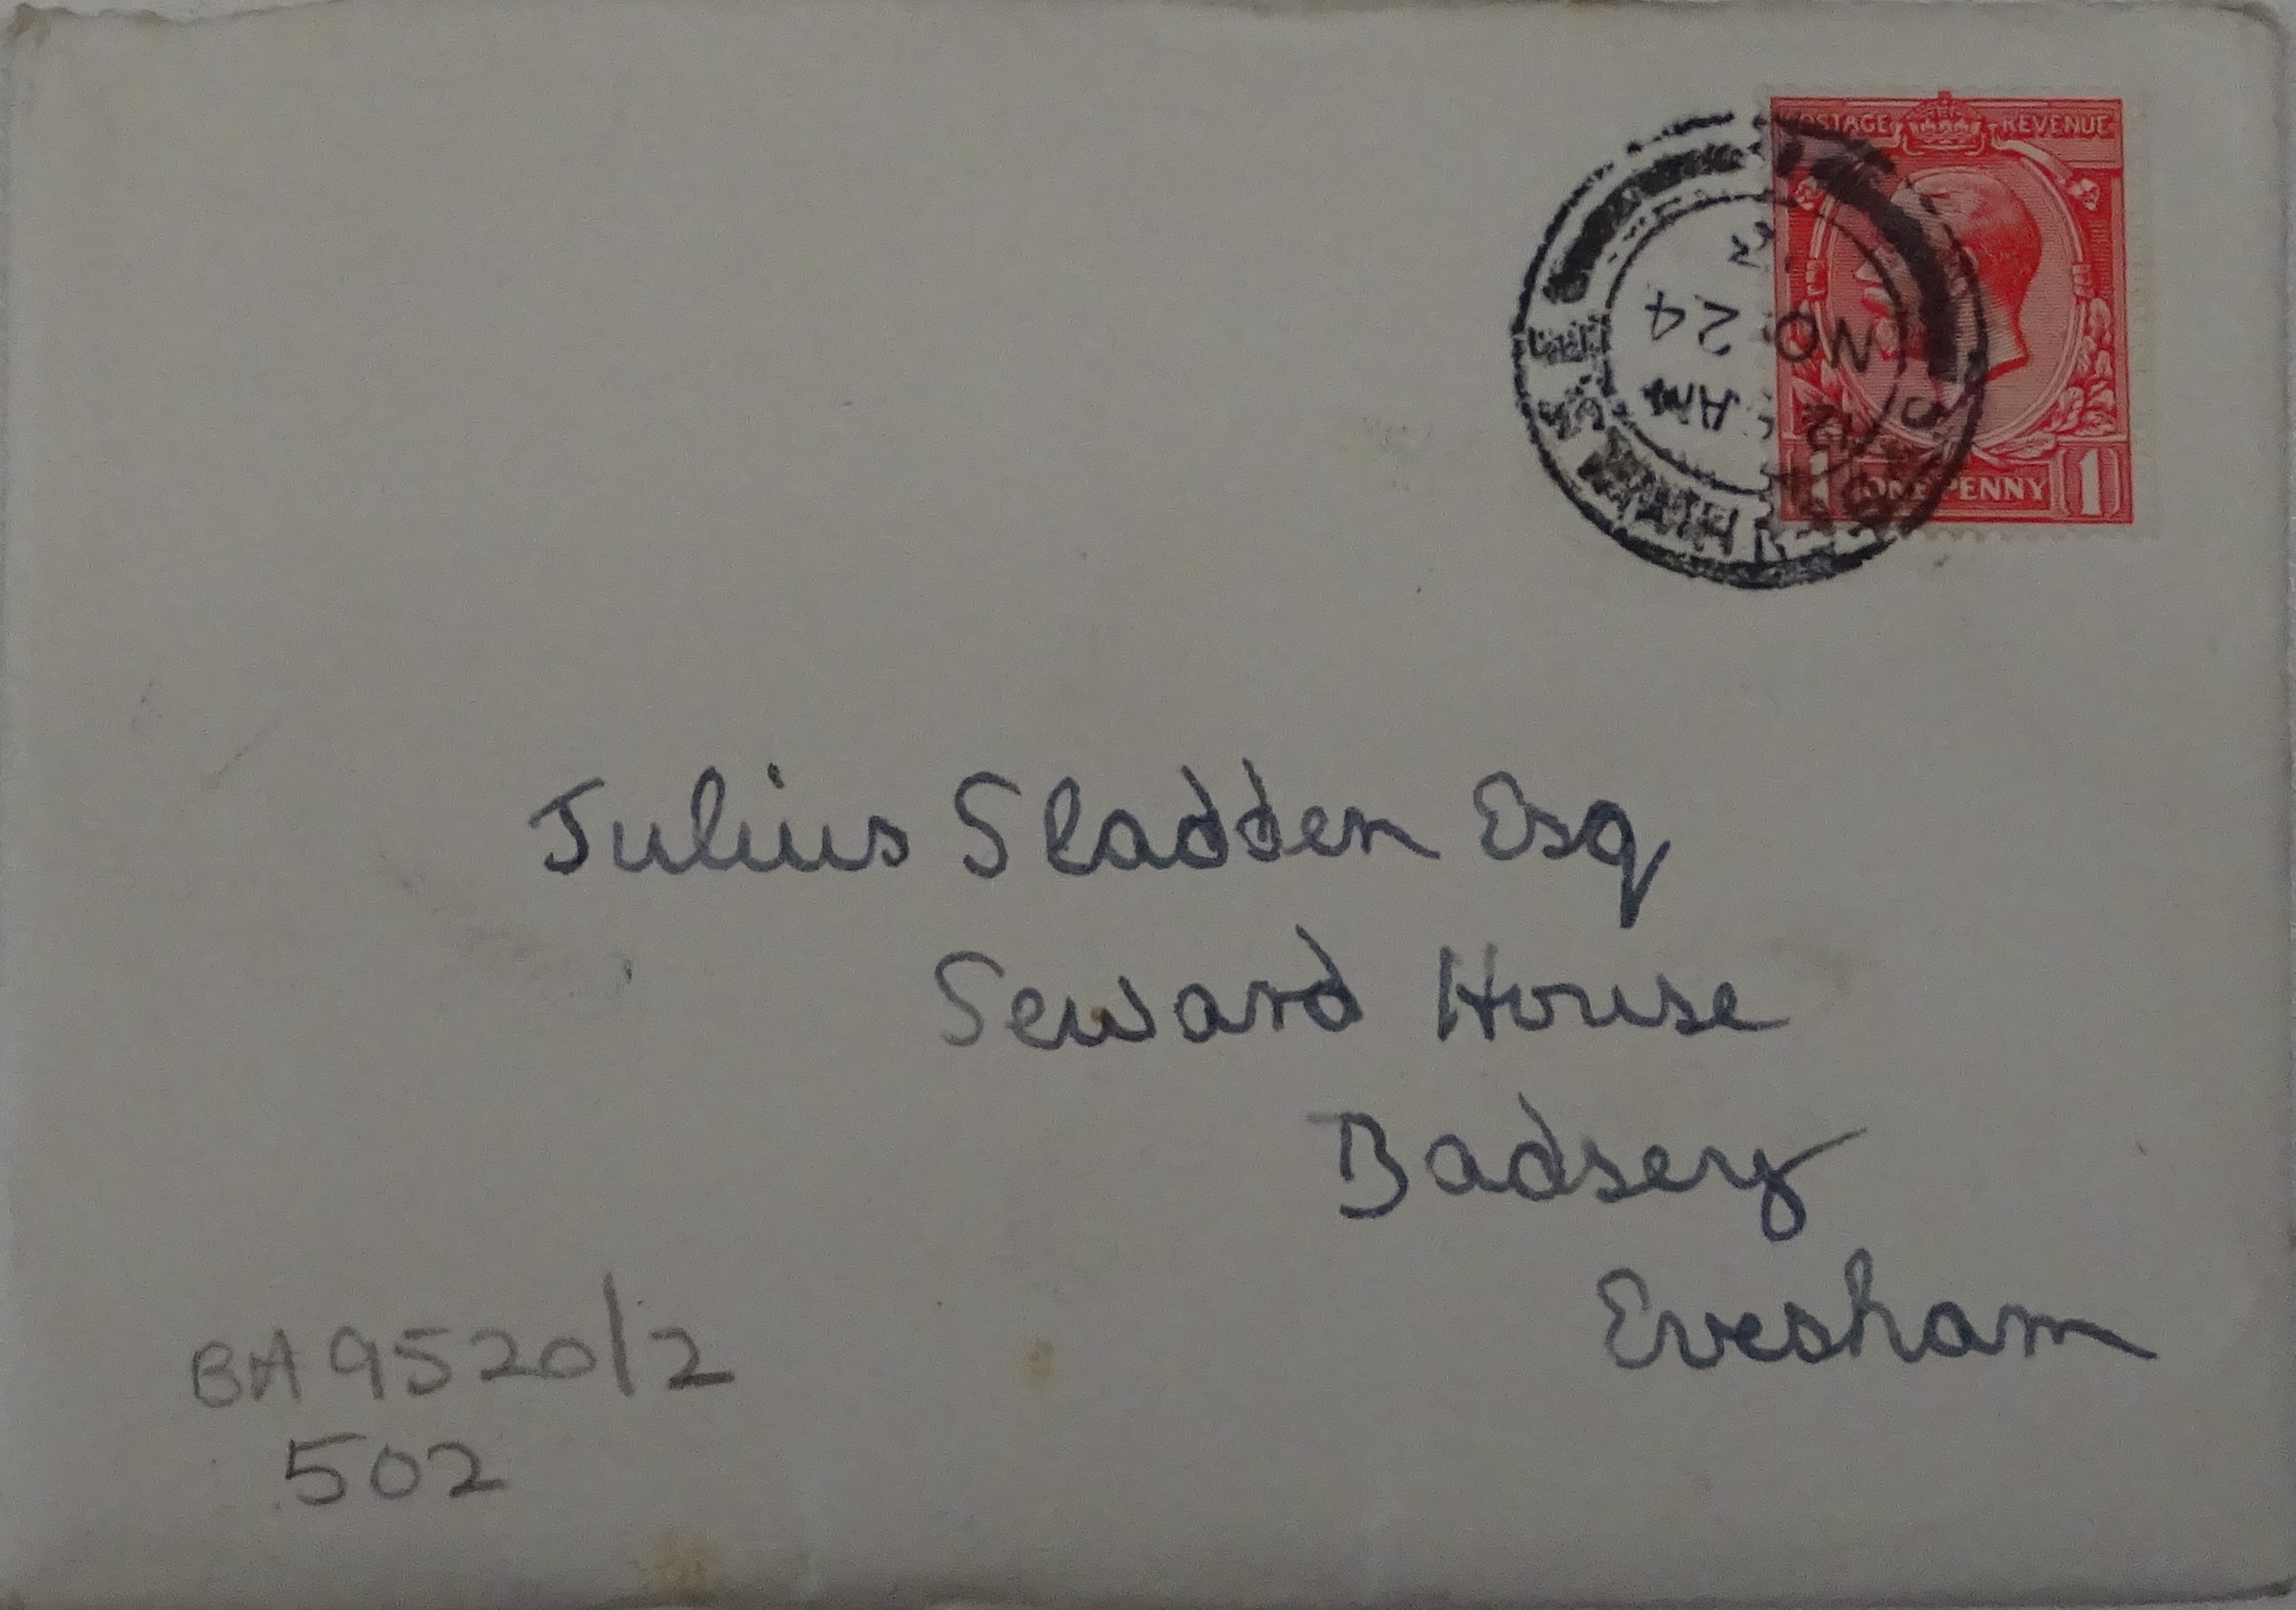 POSTAGE REVENUE
NO 24
AM
12
1 ONE PENNY 1
Julius Sladden Esq
Seward House
Badsey
Evesham
BA 9520/2
502